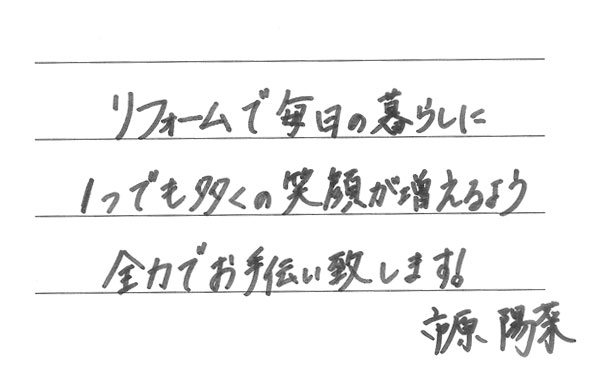 リフォームで毎日の暮らしに
1つでも多くの笑顔が増えるよう
全力でお手伝い致します!
市原 陽菜